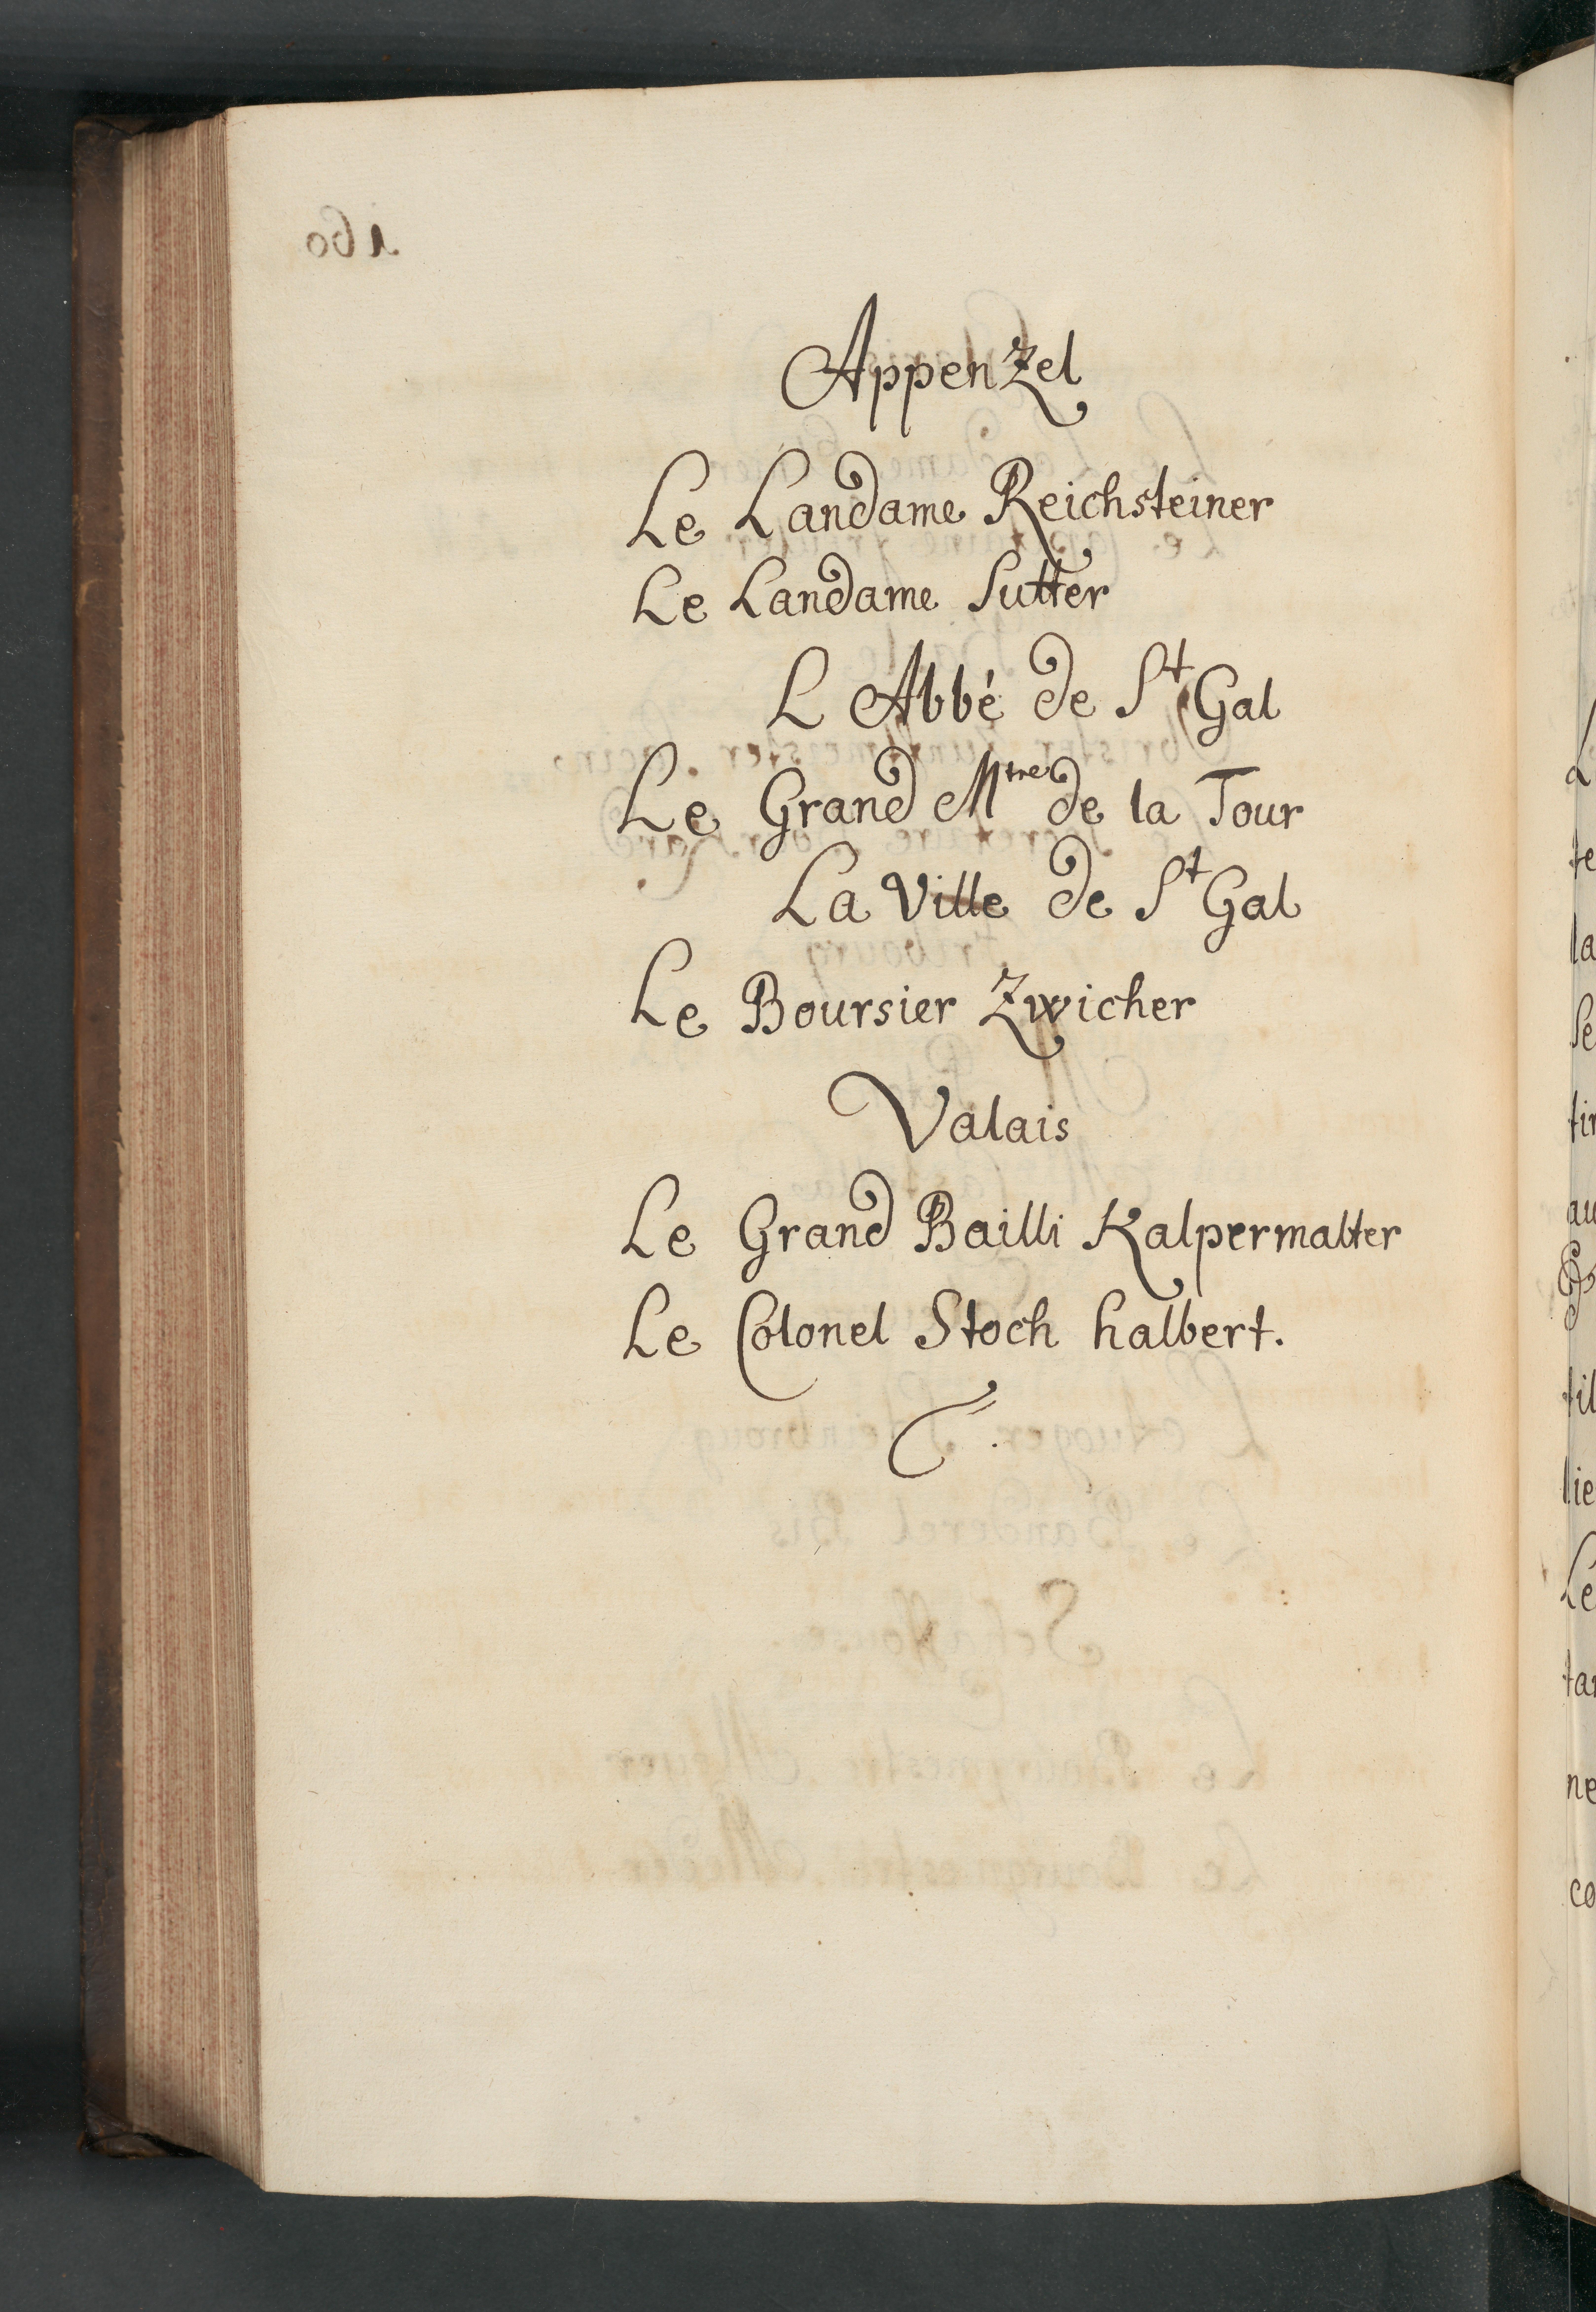 Appenzel
Le Landame Reichsteiner
Le Landame Sutter
L Abbé de St Gal
Le Grand Mtre de la Tour
La Ville de St Gal
Le Boursier Zwicher
Valais
Le Grand Bailli Kalpermalter
Le Colonel Stoch halbert.